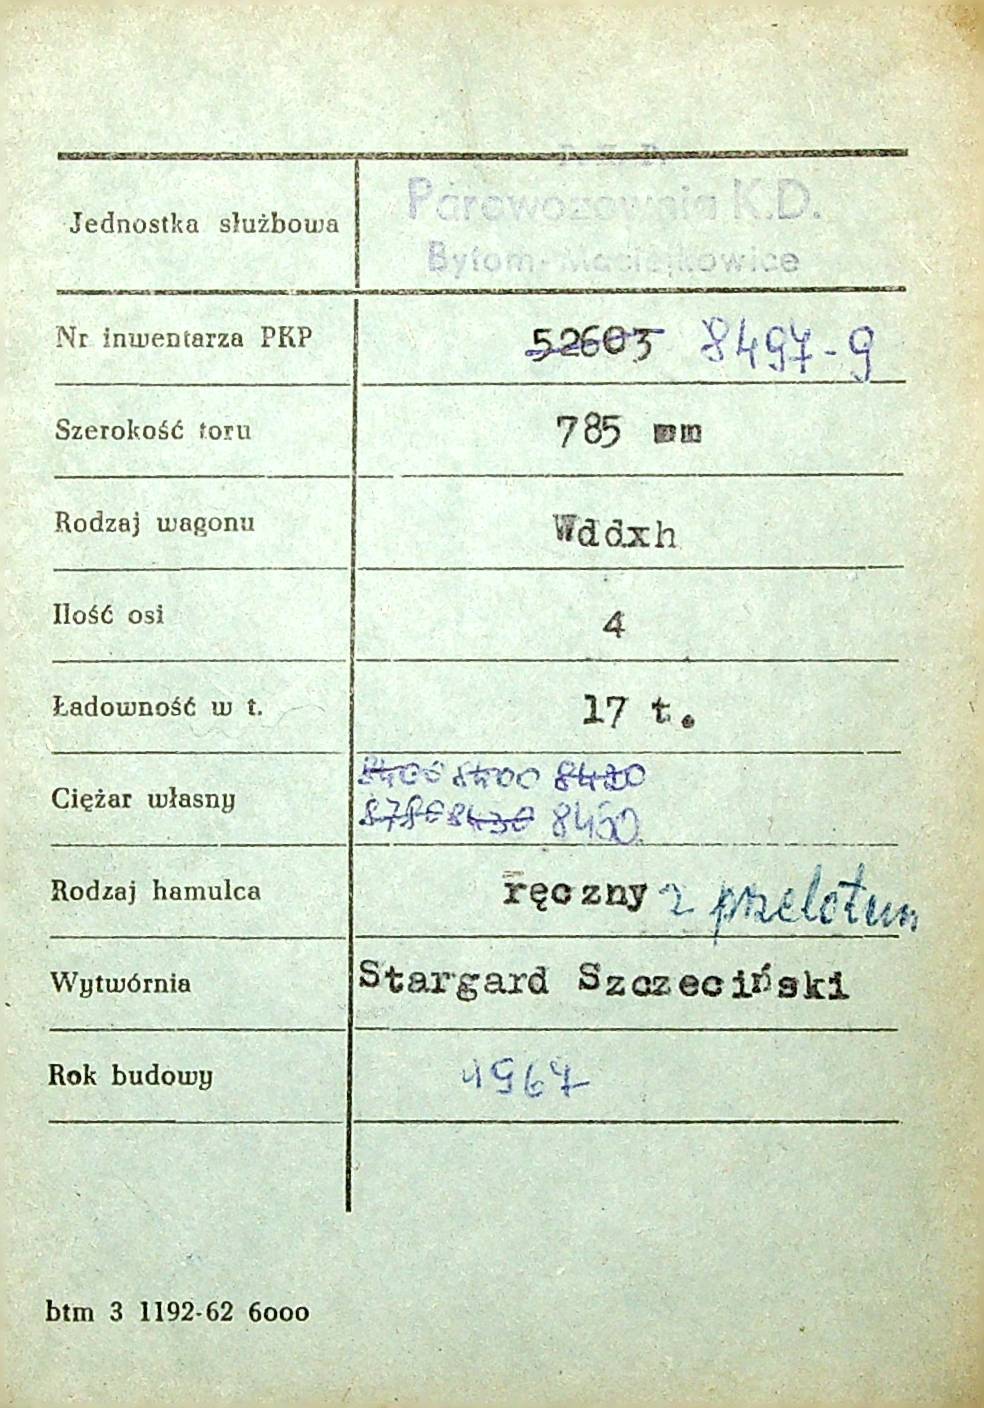 P. K. P.
Jednostka służbowa Parowozownia K.D.
Bytom-Maciejkowice
Nr inwentarza PKP 52603 8497-9
Szerokość toru 785 mm
Rodzaj wagonu Wddxh
Ilość osi 4
Ładowność w t. 17 t.
8400 8400 8420
Ciężar własny 8430 8450
Rodzaj hamulca ręczny z przelotem
Wytwórnia Stargard Szczeciński
Rok budowy 1967
btm 3 1192-62 6000